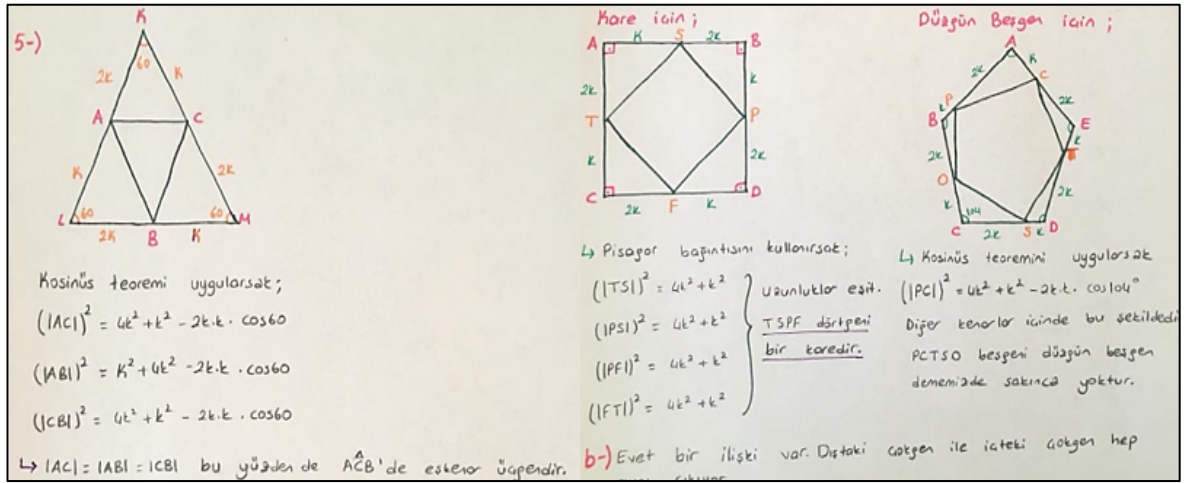 5-)
K
2k
60
K
A
C
K
2k
L
60
60
M
2K
B
K
Kosinüs teoremi uygularsak;
(|AC|)² = 4k² + k² - 2k.k . cos60
(|AB|)² = K² + 4k² - 2k.k . cos60
(|CB|)² = 4k² + k² - 2k.k . cos60
↳ |AC| = |AB| = |CB| bu yüzden de AĈB'de eşkenar üçgendir.
Kare için;
A
K
S
2k
B
2k
k
T
P
k
2k
C
2k
F
k
D
↳ Pisagor bağıntısını kullanırsak;
(|TS|)² = 4k² + k²
(|PS|)² = 4k² + k²
(|PF|)² = 4k² + k²
(|FT|)² = 4k² + k²
Uzunluklar eşit.
TSPF dörtgeni
bir karedir.
Düzgün Beşgen için;
A
2k
K
C
P
2k
k
B
E
2k
k
T
O
2k
k
104
C
2k
S
k
D
↳ Kosinüs teoremini uygularsak
(|PC|)² = 4k² + k² - 2k.k . cos104°
Diğer kenarlar içinde bu şekildedir
PCTSO beşgeni düzgün beşgen
dememizde sakınca yoktur.
b-) Evet bir ilişki var. Dıştaki çokgen ile içteki çokgen hep